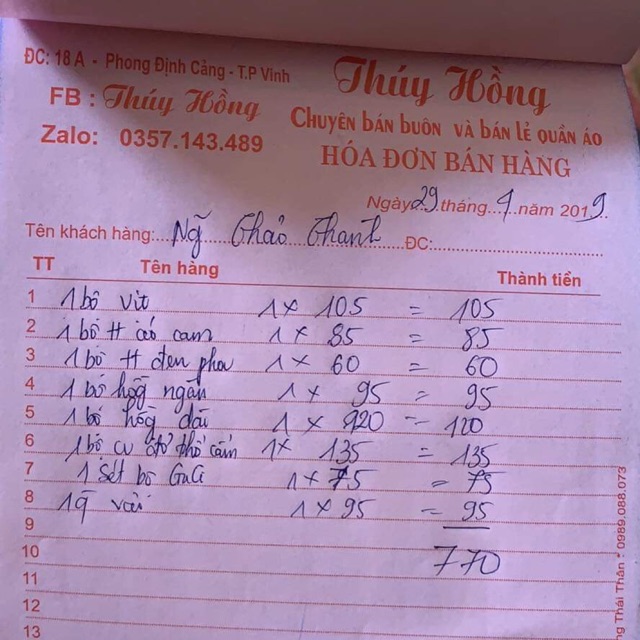 ĐC: 18 A - Phong Định Cảng - T.P Vinh
FB : Thúy Hồng
Zalo: 0357.143.489
Thúy Hồng
Chuyên bán buôn và bán lẻ quần áo
HÓA ĐƠN BÁN HÀNG
Ngày 29 tháng 9 năm 2019
Tên khách hàng: Ng Thảo Thanh ĐC:
TT Tên hàng Thành tiền
1 1 bô vit 1 x 105 = 105
2 1 bô H áo cam 1 x 85 = 85
3 1 bô H đen pha 1 x 60 = 60
4 1 bô hồg ngắn 1 x 95 = 95
5 1 bô hồg dài 1 x 120 = 120
6 1 bô thổ cẩm 1x 135 = 135
7 1 Sét bô GuCi 1 x 75 = 75
8 1 q vải 1 x 95 = 95
9
10 770
11
12
13
ng Thái Thân - 0989.088.073